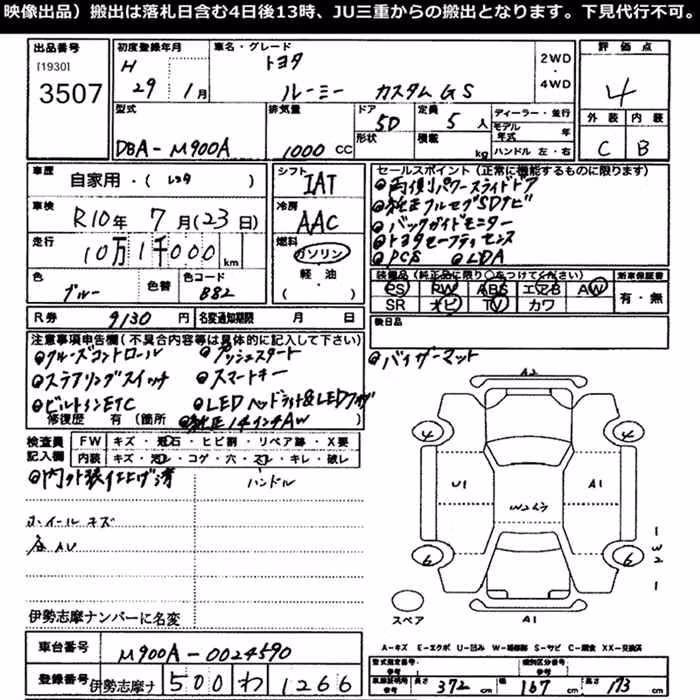 映像出品）搬出は落札日含む4日後13時、JU三重からの搬出となります。下見代行不可。
出品番号 初度登録年月 車名・グレード 評価点
[1930] H トヨタ 2WD
3507 29年 1月 ルーミー カスタムGS 4WD 4
型式 排気量 ドア 5D 定員 5人 ディーラー・並行 外装 内装
形状 積載 kg モデル年式 年
DBA-M900A 1000CC ハンドル 左・右 C B
車歴 自家用・(レンタ) シフト IAT セールスポイント(正常に機能するものに限ります)
両側パワースライドドア
車検 R10年 7月(23日) 冷房 AAC 純正フルセグSDナビ
バックガイドモニター
走行 10万1千000km 燃料 ガソリン トヨタセーフティセンス
軽油 PCS LDA
色 色替 色コード ( ) 装備品(純正品に限り○をつけてください) 新車保証書
ブルー B82 PS PW ABS エアB AW 有・無
SR ナビ TV カワ
R券 9130円 名変通知期限 月 日 検日品
注意事項申告欄(不具合内容等は具体的に記入して下さい) バイザーマット
クルーズコントロール プッシュスタート A2
ステアリングスイッチ スマートキー
ビルトインETC LEDヘッドライト&LEDフォグ
修復歴 有(箇所 純正14インチAW ) 4 4
検査員 FW キズ・飛石・ヒビ割・リペア跡・X要
記入欄 内装 キズ・汚レ・コゲ・穴・スレ・キレ・破レ
内外装仕上げ済 ハンドル U1 A1
ホイールキズ
全AU 6 6
1
W2
1
スペア A1
伊勢志摩ナンバーに名変
A-キズ E-エクボ U-凹み W-補修跡 S-サビ C-腐食 XX-交換済
車台番号 M900A-0024590 型式指定番号 類別区分番号
登録番号 伊勢志摩ナ 500 わ 1266 車庫証明用参考 長さ 372cm 幅 167cm 高さ 173cm